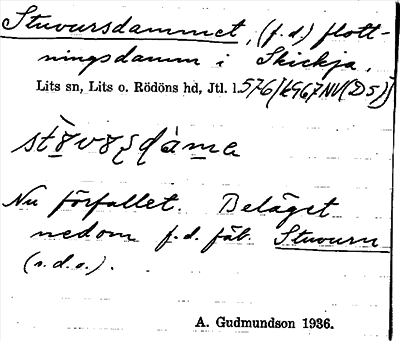 Stuvursdammet, (f.d.) flott-
ningsdamm i Skickja.
Lits sn, Lits o. Rödöns hd, Jtl. l.
Nu förfallet. Beläget
nedom f.d. fäb. Stuvurn
(s.d.o.).
A. Gudmundson 1936.